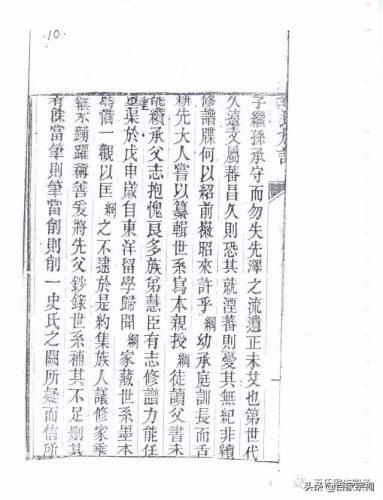 10
氏族譜
子繼孫承守而勿失先澤之流遺正未艾也第世代
久遠支屬蕃昌久則恐其就湮蕃則憂其無紀非續
修譜牒何以紹前徽昭來許乎綱幼承庭訓長而舌
耕先大人嘗以纂輯世系寫本親授綱徒讀父書未
能續承父志抱愧良多族弟慧臣有志修譜力能任
重渠於戊申歲自東洋留學歸聞綱家藏世系墨本
借一觀以匡綱之不逮於是約集族人議修家乘
無不踴躍稱善爰將先父鈔錄世系補其不足刪其
有餘當筆則筆當削則削一史氏之闕所疑而信所
头条@百家宗祠